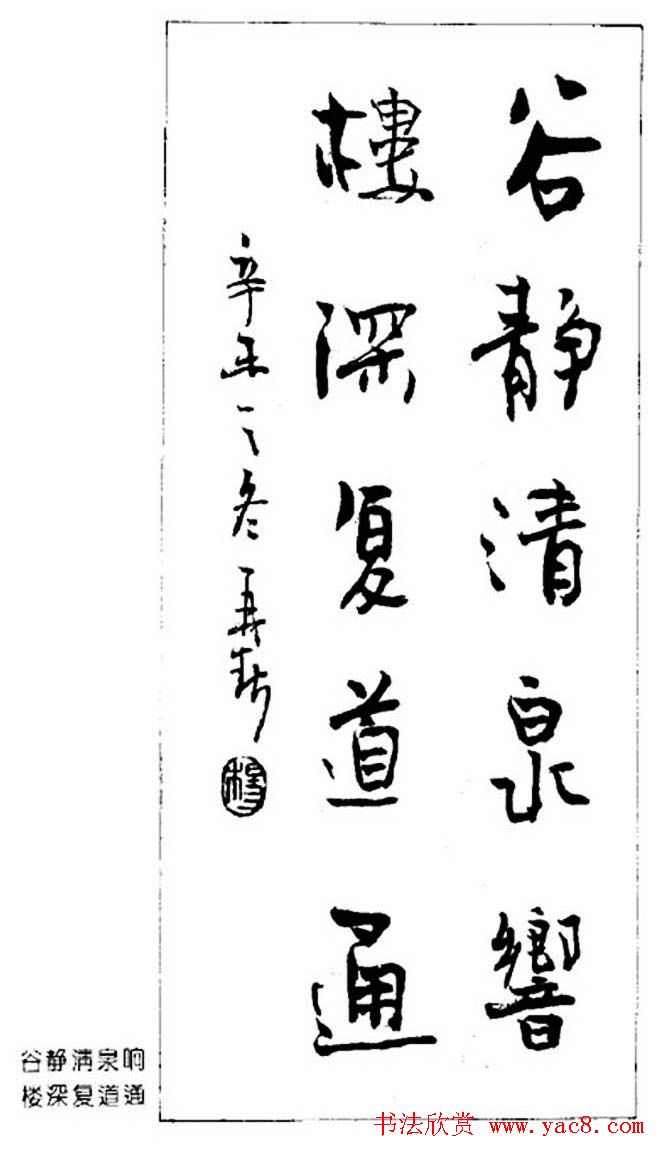 谷靜清泉響
樓深复道通
辛未之冬
谷静清泉响
楼深复道通
书法欣赏 www.yac8.com